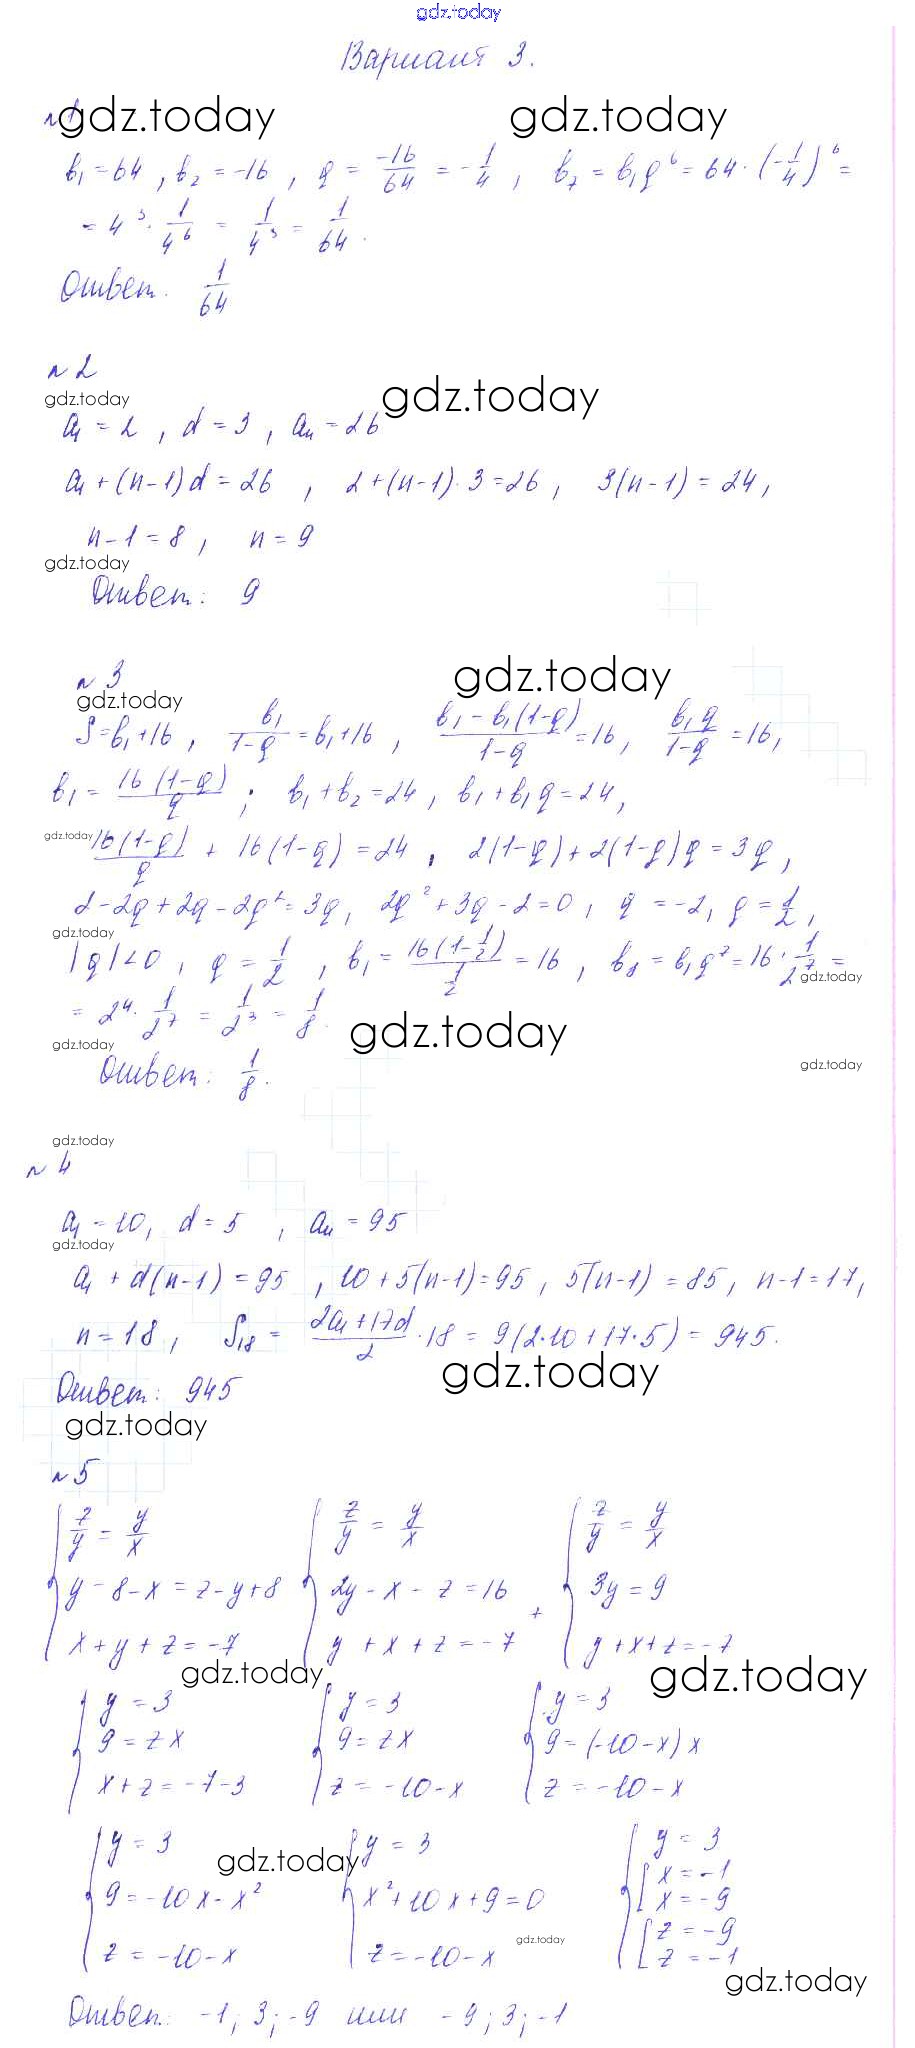 gdz.today
Вариант 3.
№1 gdz.today gdz.today
b₁ = 64, b₂ = -16, q = -16/64 = -1/4, b₇ = b₁q⁶ = 64·(-1/4)⁶ =
= 4³ · 1/4⁶ = 1/4³ = 1/64.
Ответ. 1/64
№2
gdz.today gdz.today
a₁ = 2, d = 3, aₙ = 26
a₁ + (n-1)d = 26, 2+(n-1)·3 = 26, 3(n-1) = 24,
n-1 = 8, n = 9
gdz.today
Ответ: 9
№3 gdz.today
gdz.today
S = b₁+16, b₁/(1-q) = b₁+16, (b₁-b₁(1-q))/(1-q) = 16, b₁q/(1-q) = 16,
b₁ = 16(1-q)/q; b₁+b₂ = 24, b₁+b₁q = 24,
gdz.today 16(1-q)/q + 16(1-q) = 24, 2(1-q)+2(1-q)q = 3q,
2-2q+2q-2q² = 3q, 2q²+3q-2 = 0, q = -2, q = 1/2,
gdz.today
|q|<0, q = 1/2, b₁ = 16(1-1/2)/(1/2) = 16, b₈ = b₁q⁷ = 16·1/2⁷ =
gdz.today
= 2⁴·1/2⁷ = 1/2³ = 1/8. gdz.today
gdz.today gdz.today
Ответ: 1/8.
gdz.today
№4
a₁ = 10, d = 5, aₙ = 95
gdz.today
a₁ + d(n-1) = 95, 10+5(n-1) = 95, 5(n-1) = 85, n-1 = 17,
n = 18, S₁₈ = (2a₁+17d)/2 · 18 = 9(2·10+17·5) = 945.
gdz.today
Ответ: 945
gdz.today
№5
{ z/y = y/x { z/y = y/x { z/y = y/x
y-8-x = z-y+8 2y-x-z = 16 + 3y = 9
x+y+z = -7 y+x+z = -7 y+x+z = -7
gdz.today gdz.today
{ y = 3 { y = 3 { y = 3
9 = zx 9 = zx 9 = (-10-x)x
x+z = -7-3 z = -10-x z = -10-x
{ y = 3 gdz.today { y = 3 { y = 3
9 = -10x-x² x²+10x+9 = 0 [ x = -1 x = -9
z = -10-x z = -10-x gdz.today [ z = -9 z = -1
gdz.today
Ответ: -1; 3; -9 или -9; 3; -1